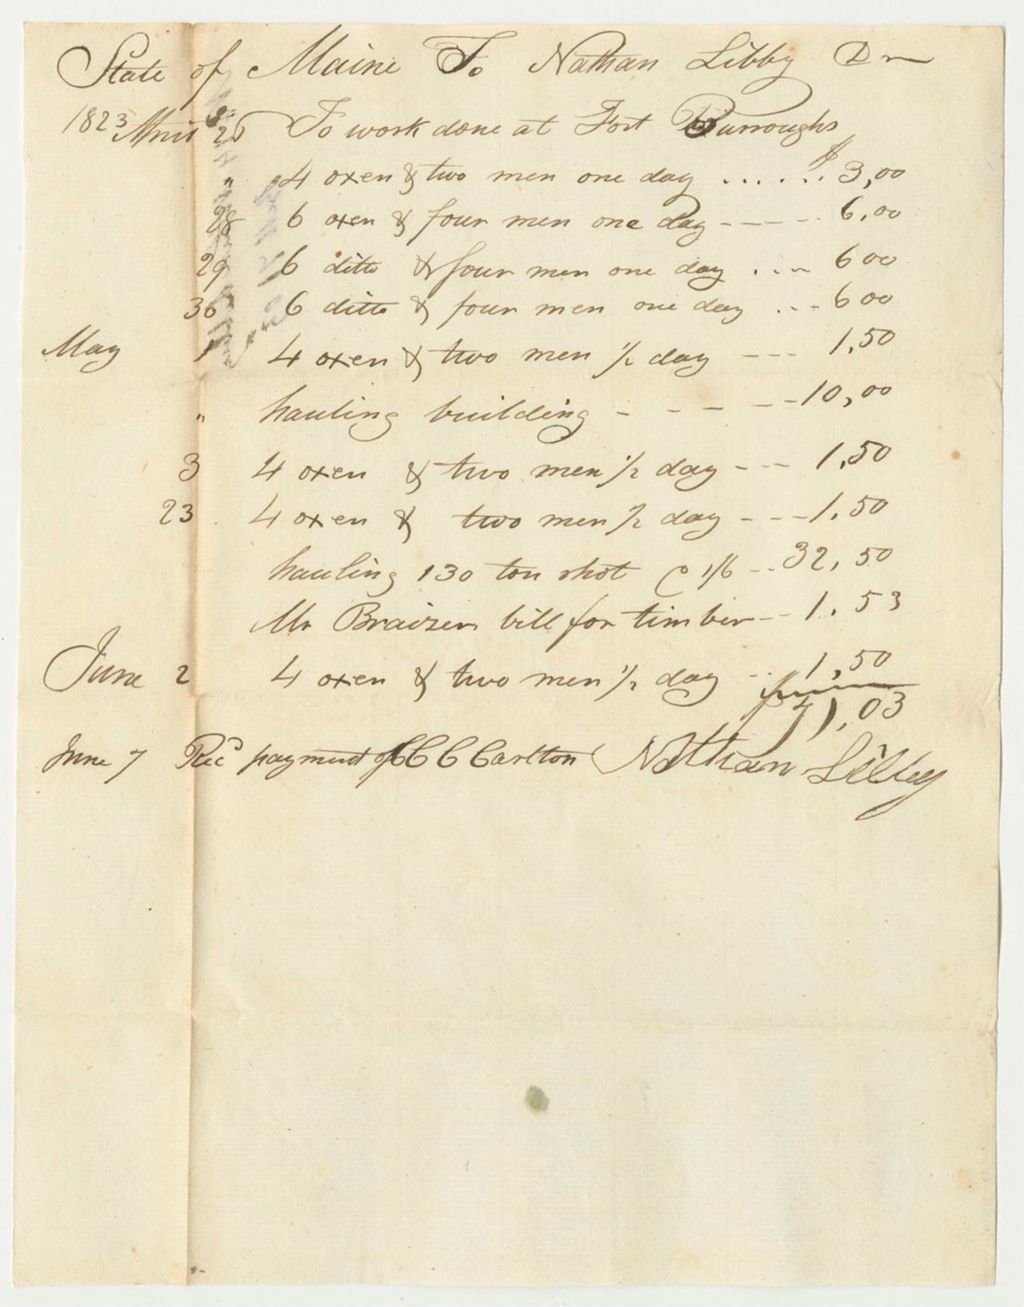 State of Maine To Nathan Libby Dr
1823 April 26 To work done at Fort Burroughs
" 4 oxen & two men one day ...... $3,00
28 6 oxen & four men one day ---- 6,00
29 6 ditto & four men one day ... 6 00
30 6 ditto & four men one day ... 6 00
May 1 4 oxen & two men 1/2 day --- 1,50
" hauling building - - - - - 10,00
3 4 oxen & two men 1/2 day --- 1,50
23 4 oxen & two men 1/2 day --- 1,50
hauling 130 ton shot @ 1/6 -- 32,50
Mr Braizer bill for timber -- 1.53
June 2 4 oxen & two men 1/2 day -- 1,50
$71,03
June 7 Rec'd payment of C C Carlton Nathan Libby